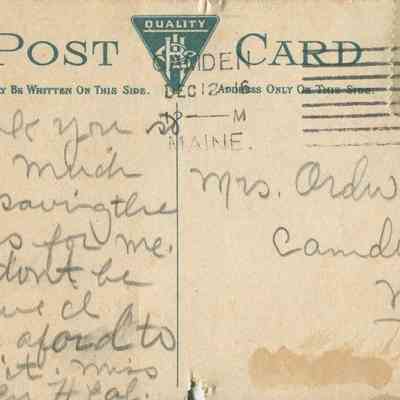 POST CARD
QUALITY
Y BE WRITTEN ON THIS SIDE.
ADDRESS ONLY ON THIS SIDE.
CAMDEN
DEC 12 16
M
MAINE.
you so
much
saving the
s for me.
dont be
aford to
it. Miss
Mrs. Ordw
Camde